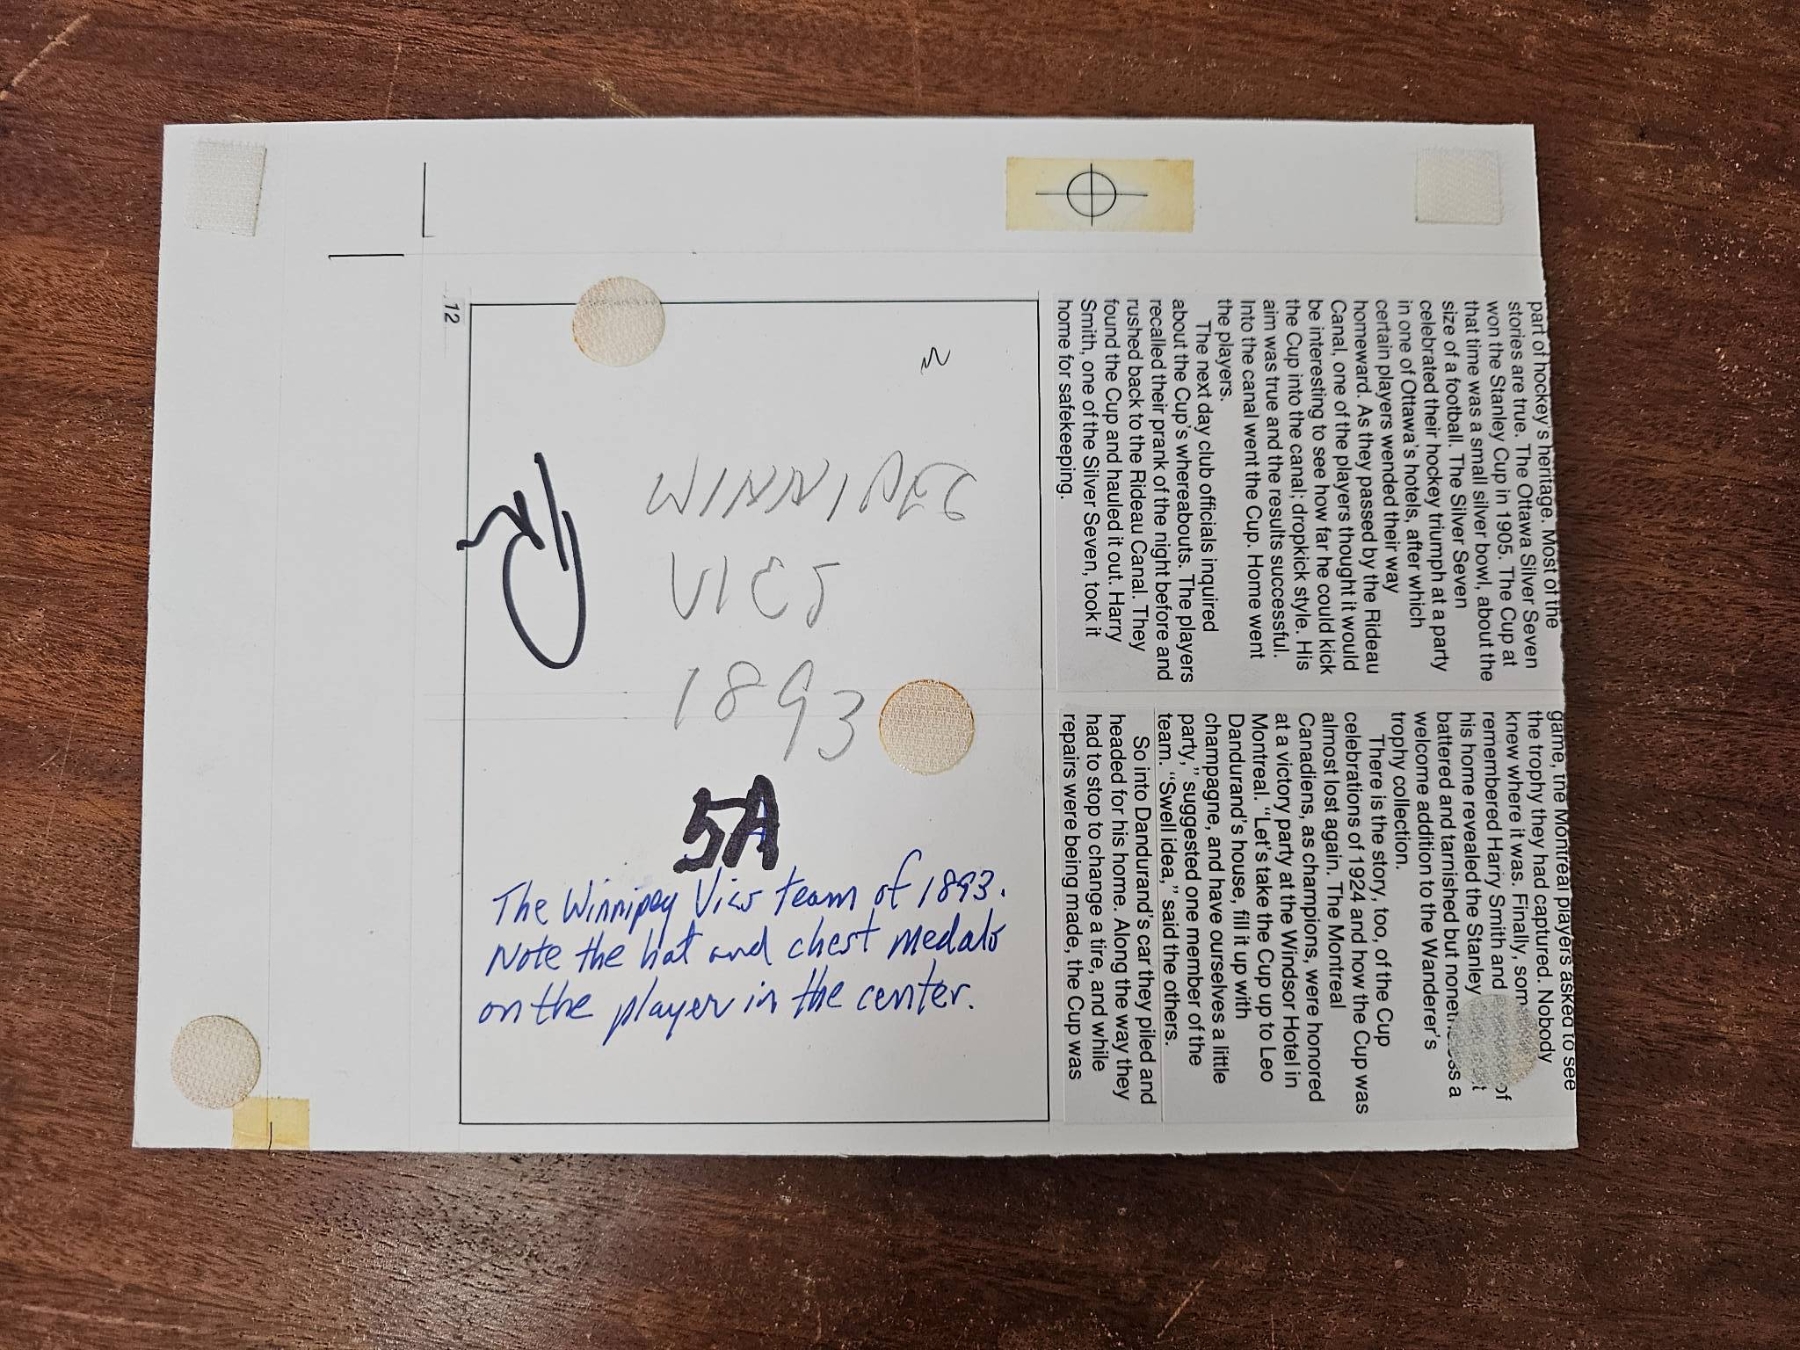 part of hockey's heritage. Most of the
stories are true. The Ottawa Silver Seven
won the Stanley Cup in 1905. The Cup at
that time was a small silver bowl, about the
size of a football. The Silver Seven
celebrated their hockey triumph at a party
in one of Ottawa's hotels, after which
certain players wended their way
homeward. As they passed by the Rideau
Canal, one of the players thought it would
be interesting to see how far he could kick
the Cup into the canal; dropkick style. His
aim was true and the results successful.
Into the canal went the Cup. Home went
the players.
The next day club officials inquired
about the Cup's whereabouts. The players
recalled their prank of the night before and
rushed back to the Rideau Canal. They
found the Cup and hauled it out. Harry
Smith, one of the Silver Seven, took it
home for safekeeping.
game, the Montreal players asked to see
the trophy they had captured. Nobody
knew where it was. Finally, som
remembered Harry Smith and of
his home revealed the Stanley
battered and tarnished but a
welcome addition to the Wanderer's
trophy collection.
There is the story, too, of the Cup
celebrations of 1924 and how the Cup was
almost lost again. The Montreal
Canadiens, as champions, were honored
at a victory party at the Windsor Hotel in
Montreal. "Let's take the Cup up to Leo
Dandurand's house, fill it up with
champagne, and have ourselves a little
party," suggested one member of the
team. "Swell idea," said the others.
So into Dandurand's car they piled and
headed for his home. Along the way they
had to stop to change a tire, and while
repairs were being made, the Cup was
12
WINNIPEG
VICS
1893
5A
The Winnipeg Vics team of 1893.
Note the hat and chest medals
on the player in the center.